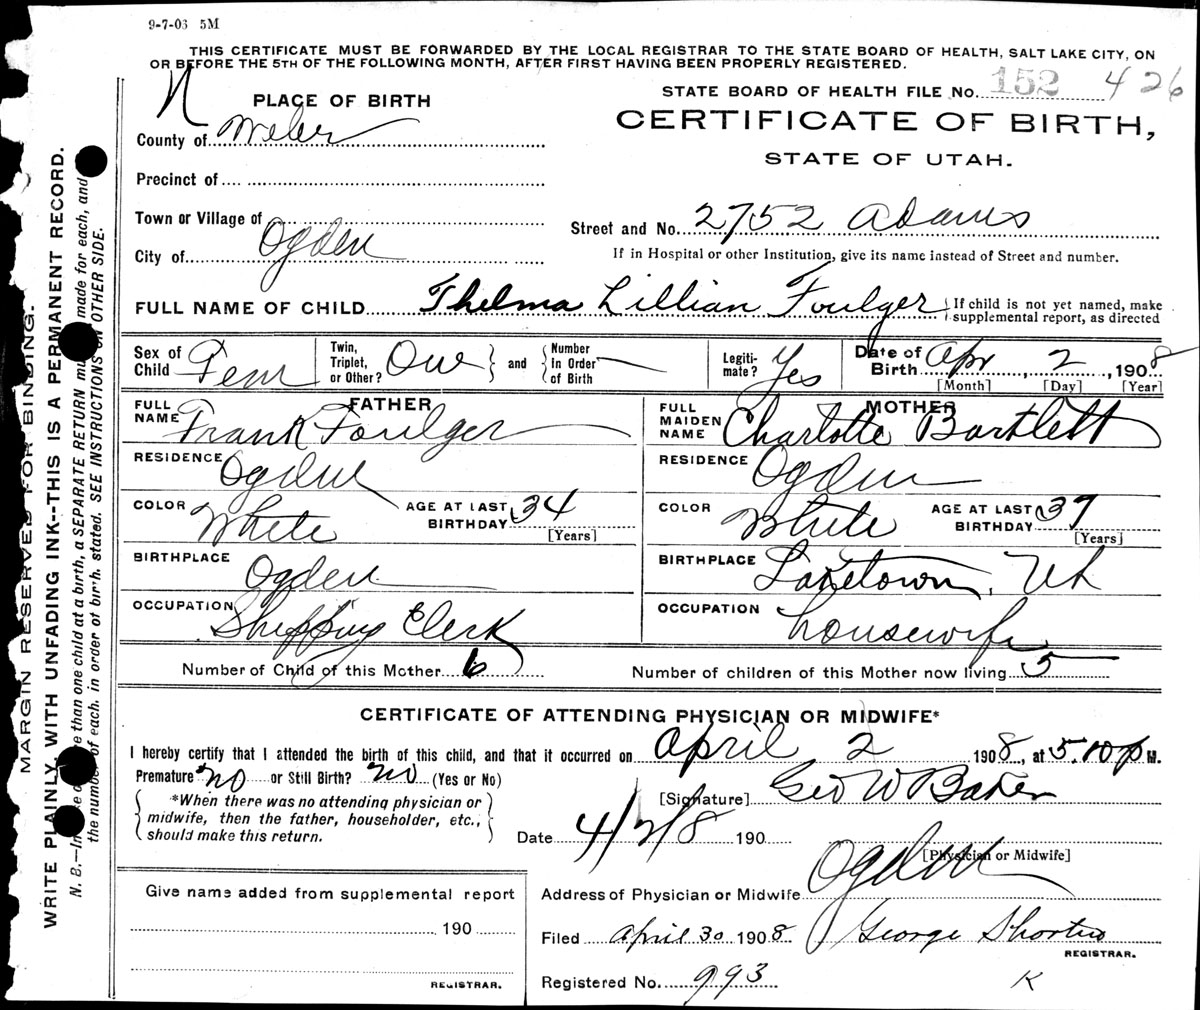 9-7-03 5M
THIS CERTIFICATE MUST BE FORWARDED BY THE LOCAL REGISTRAR TO THE STATE BOARD OF HEALTH, SALT LAKE CITY, ON
OR BEFORE THE 5TH OF THE FOLLOWING MONTH, AFTER FIRST HAVING BEEN PROPERLY REGISTERED.
N
PLACE OF BIRTH
STATE BOARD OF HEALTH FILE No. 152 426
County of Weber
CERTIFICATE OF BIRTH,
STATE OF UTAH.
Precinct of
Town or Village of
Street and No. 2752 Adams
City of Ogden
If in Hospital or other Institution, give its name instead of Street and number.
FULL NAME OF CHILD Thelma Lillian Foulger { If child is not yet named, make
supplemental report, as directed
Sex of Child Fem
Twin, Triplet, or Other? One } and { Number in Order of Birth
Legiti-mate? Yes
Date of Birth Apr 2, 1908
[Month] [Day] [Year]
FATHER
FULL NAME Frank Foulger
RESIDENCE Ogden
COLOR White AGE AT LAST BIRTHDAY 34
[Years]
BIRTHPLACE Ogden
OCCUPATION Shipping Clerk
MOTHER
FULL MAIDEN NAME Charlotte Bartlett
RESIDENCE Ogden
COLOR White AGE AT LAST BIRTHDAY 37
[Years]
BIRTHPLACE Laketown, Ut
OCCUPATION housewife
Number of Child of this Mother 6
Number of children of this Mother now living 5
CERTIFICATE OF ATTENDING PHYSICIAN OR MIDWIFE*
I hereby certify that I attended the birth of this child, and that it occurred on April 2 1908, at 5.10 p M.
Premature? no or Still Birth? no (Yes or No)
[Signature] Geo W Baker
*When there was no attending physician or
midwife, then the father, householder, etc.,
should make this return.
Date 4/2/8 190
[Physician or Midwife]
Address of Physician or Midwife Ogden
Give name added from supplemental report
190
REGISTRAR.
Filed April 30 1908 George Shorten
REGISTRAR.
Registered No. 993
K
MARGIN RESERVED FOR BINDING.
WRITE PLAINLY, WITH UNFADING INK--THIS IS A PERMANENT RECORD.
N. B.—In case of more than one child at a birth, a SEPARATE RETURN must be made for each, and
the number of each, in order of birth, stated. SEE INSTRUCTIONS ON OTHER SIDE.